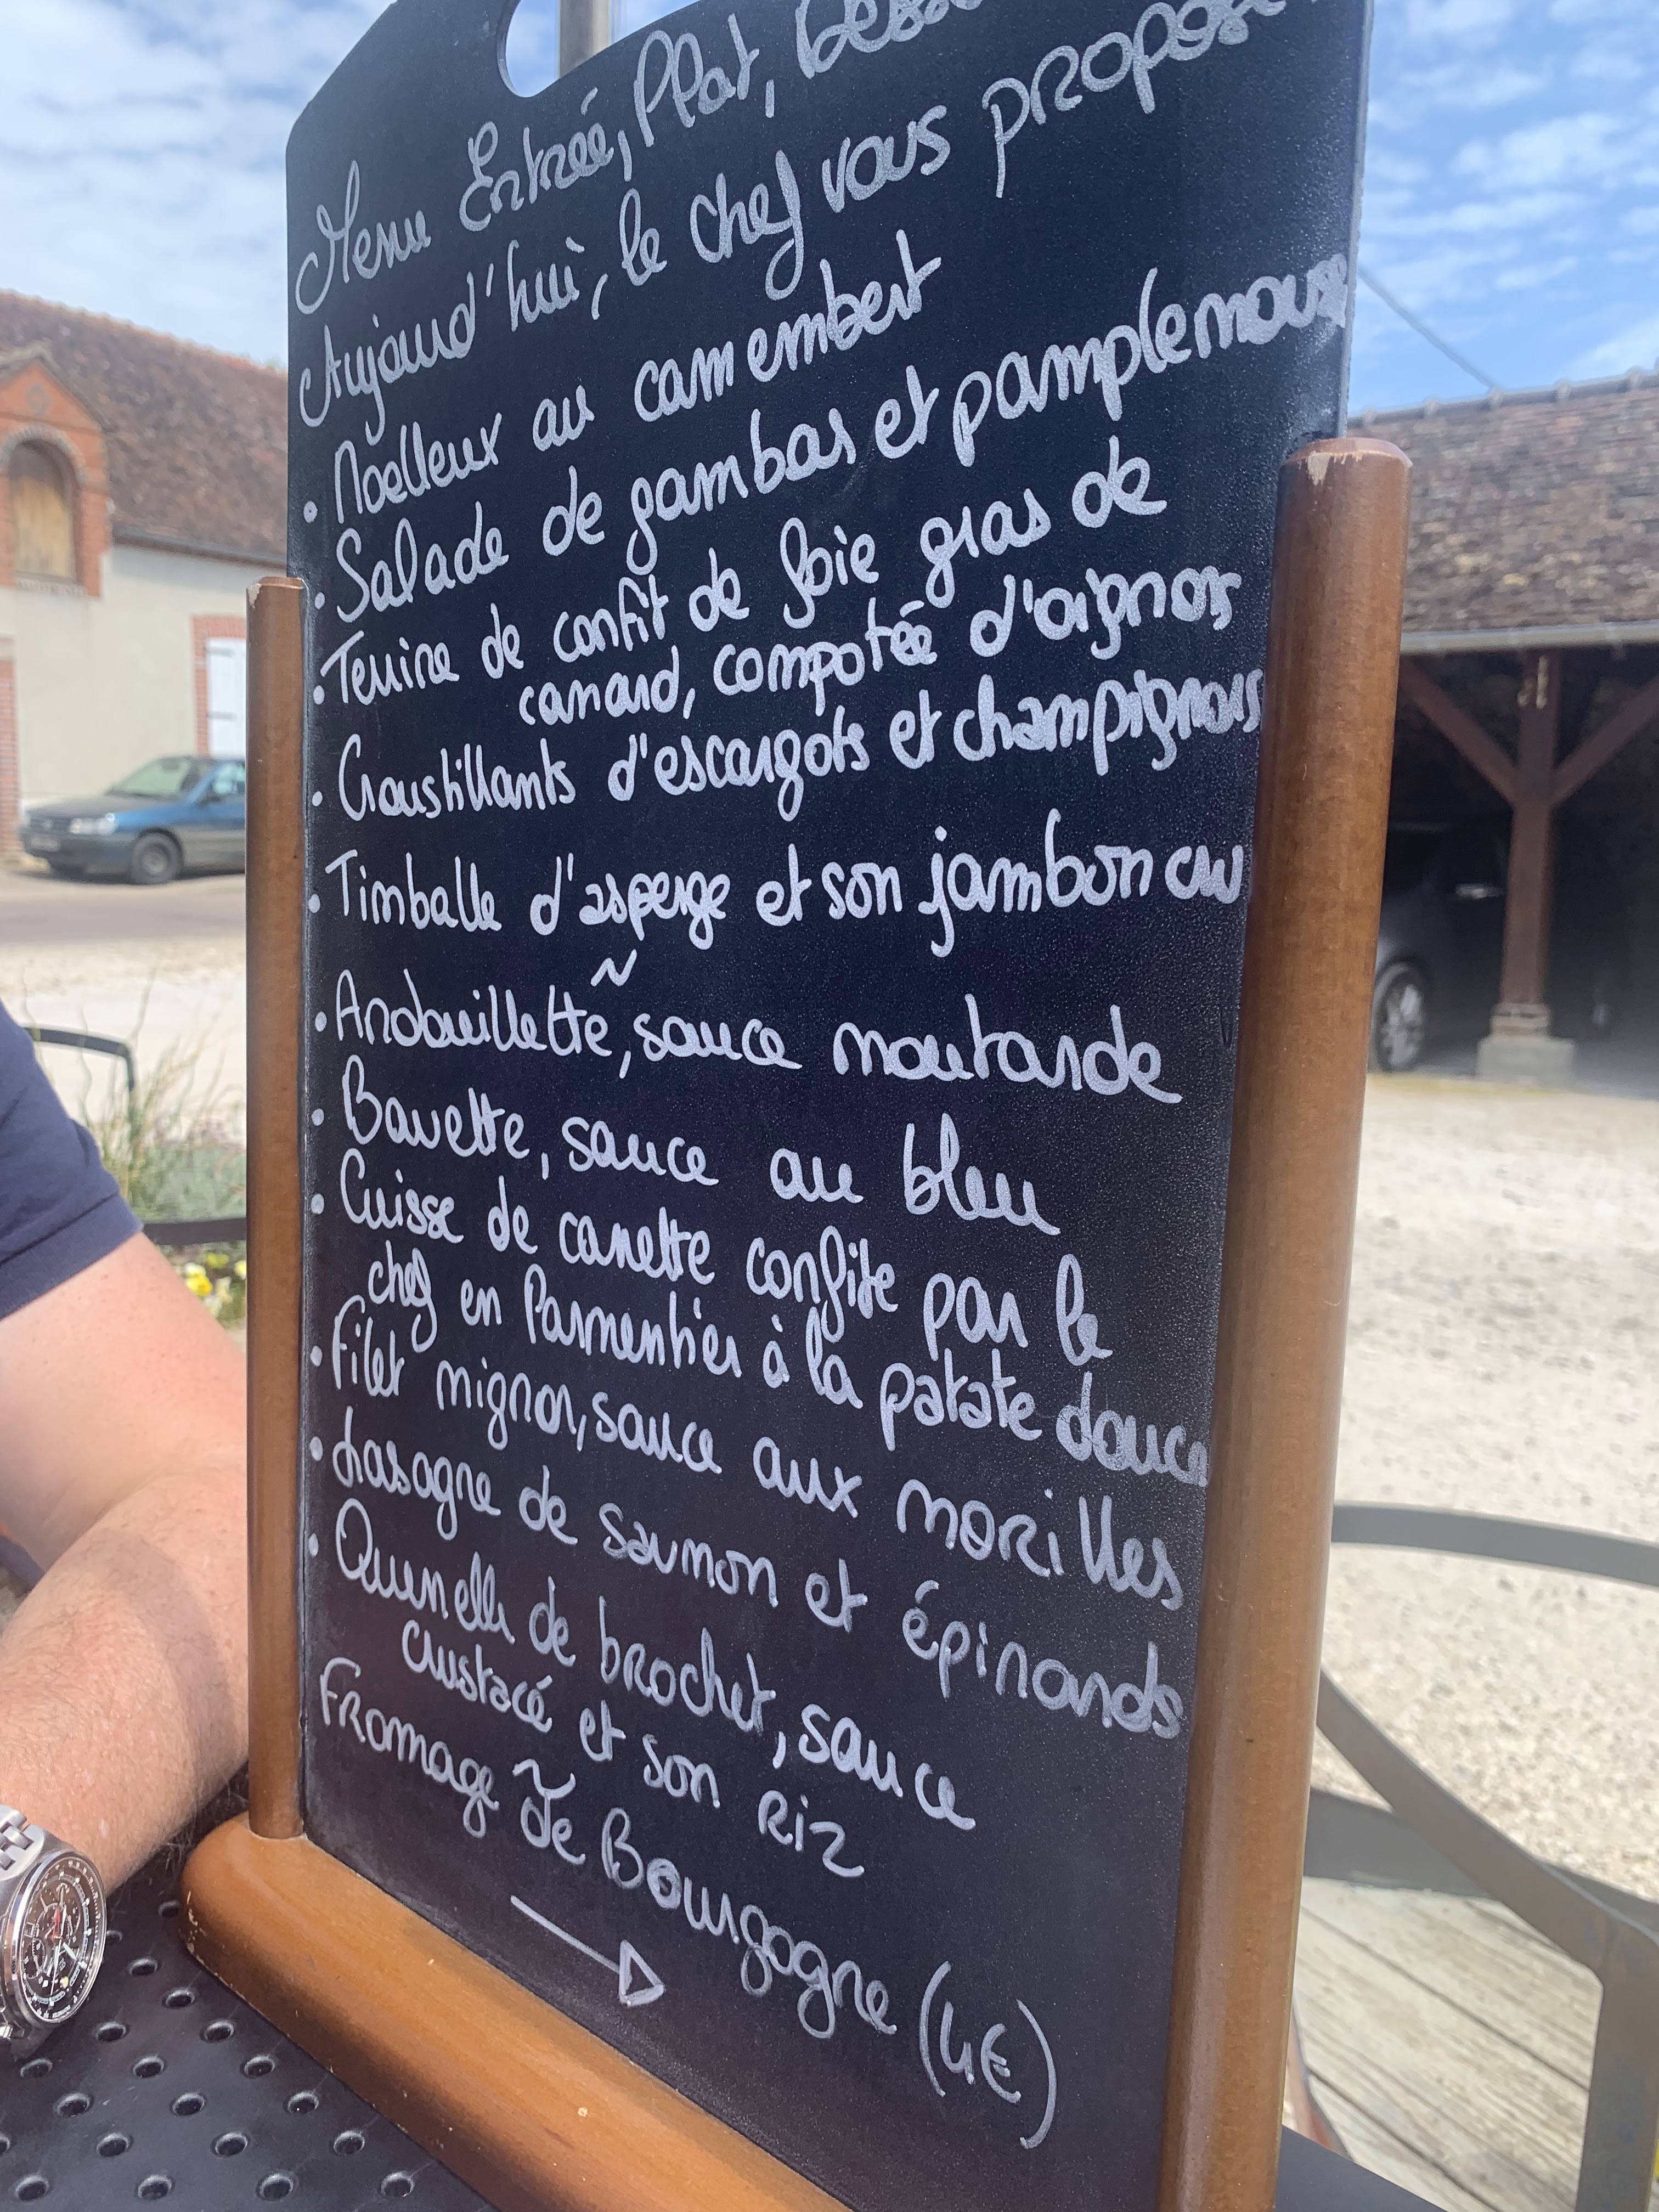 Menu Entrée, Plat, Desse
Aujourd'hui, le chef vous propose
• Moelleux au camembert
• Salade de gambas et pamplemousse
• Terrine de confit de foie gras de
canard, compotée d'oignons
• Croustillants d'escargots et champignons
• Timballe d'asperge et son jambon cru
~
• Andouillette, sauce moutarde
• Bavette, sauce au bleu
• Cuisse de canette confite par le
chef en Parmentier à la patate douce
• Filet mignon, sauce aux morilles
• Lasagne de saumon et épinards
• Quenelle de brochet, sauce
crustacé et son riz
~
Fromage de Bourgogne (4€)
→